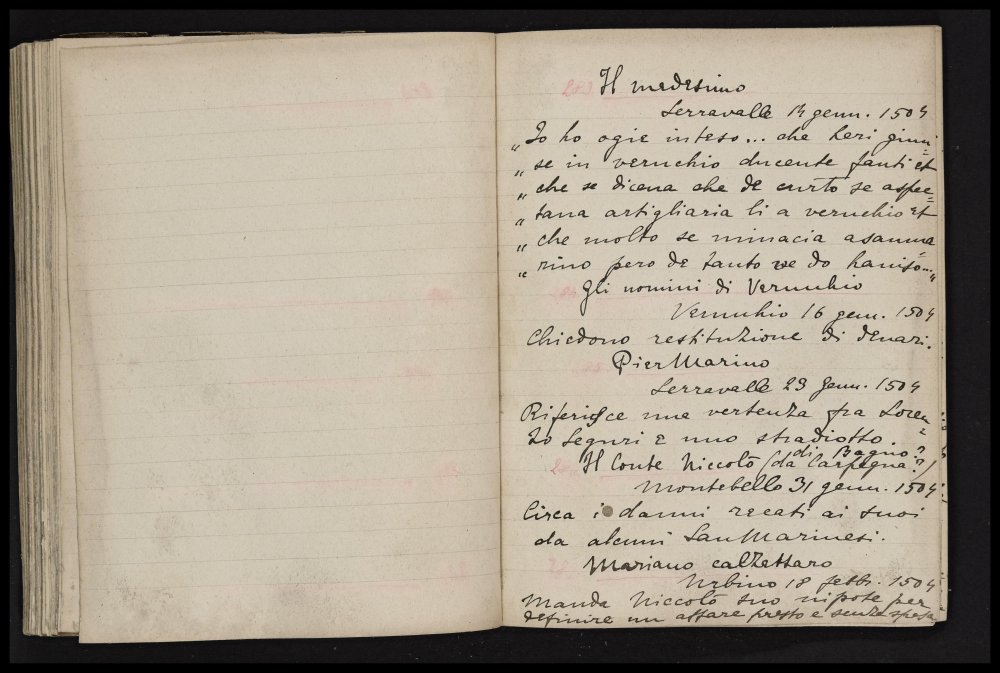 Il medesimo
Serravalle 14 genn. 1504
„ Io ho ogie inteso... che heri giun=
„ se in veruchio ducente fanti et
„ che se dicena che de curto se aspec=
„ tana artigliaria li a veruchio et
„ che molto se minacia a sanma
„ rino pero de tanto ve do haniso..."
Gli uomini di Verucchio
Verucchio 16 genn. 1504
Chiedono restituzione di denari.
Pier Marino
Serravalle 23 Genn. 1504
Riferisce una vertenza fra Loren=
zo Seguri e uno stradiotto.
di Bagno?
Il Conte Niccolò (da Carpegna?)
Montebello 31 genn. 1504
Circa i danni recati ai suoi
da alcuni San Marinesi.
Mariano calzettaro
Urbino 18 febb. 1504
Manda Niccolò suo nipote per
definire un affare presto e senza spesa